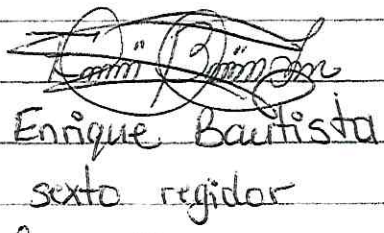 Enrique Bautista
sexto regidor